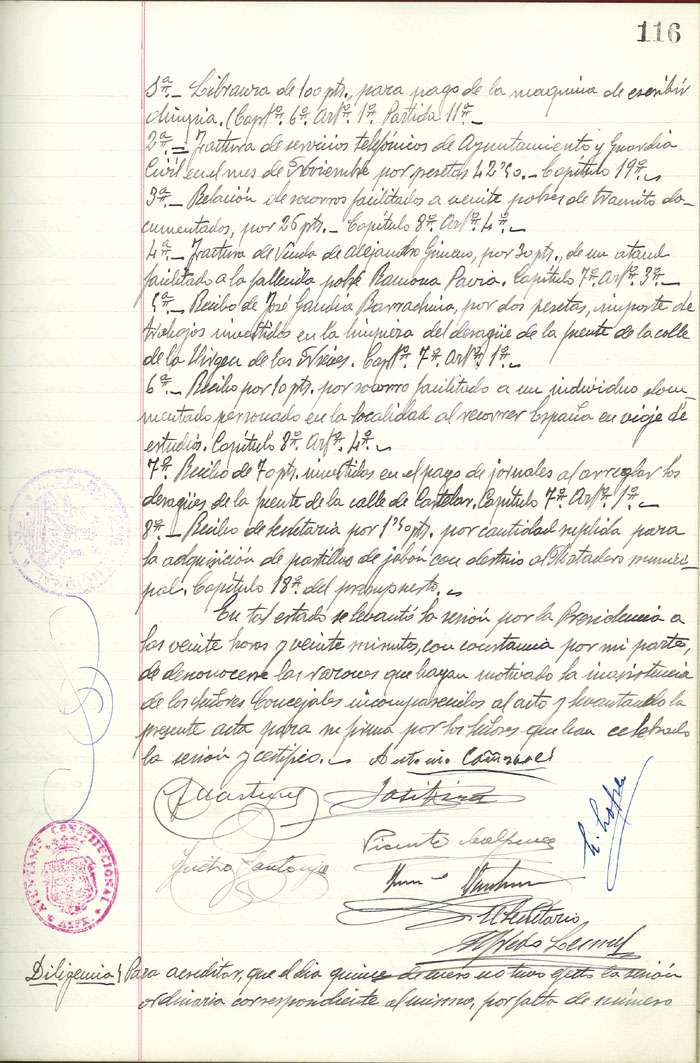 116
1ª.- Libranza de 100 pts., para pago de la maquina de escribir
olimpia. (Captº. 6º. Artº. 1º. Partida 11ª.-
2ª.= Factura de servicios telefónicos de Ayuntamiento y Guardia
Civil en el mes de Noviembre por pesetas 42'30.- Capítulo 19º.
3ª.- Relación de socorros facilitados a veinte pobres de transito do-
cumentados, por 26 pts.- Capítulo 8º. Artº. 4º.
4ª.- Factura de Viuda de Alejandro Gimeno, por 30 pts., de un ataud
facilitado a la fallecida pobre Ramona Pavia. Capítulo 7º. Artº. 3º.-
5ª.- Recibo de José Gandia Barrachina, por dos pesetas, importe de
trabajos invertidos en la limpieza del desagüe de la fuente de la calle
de la Virgen de las Nieves. Captº. 7º. Artº. 1º.-
6ª.- Recibo por 10 pts. por socorro facilitado a un individuo docu-
mentado personado en la localidad al recorrer España en viaje de
estudios. Capítulo 8º. Artº. 4º.-
7ª. Recibo de 70 pts. invertidos en el pago de jornales al arreglar los
desagües de la fuente de la calle de Castelar. Capítulo 7º. Artº. 1º.-
8ª.- Recibo de Secretaria por 1'30 pts. por cantidad suplida para
la adquisición de pastillas de jabón con destino al Matadero munici-
pal. Capítulo 18º. del presupuesto.
En tal estado se levantó la sesión por la Presidencia a
las veinte horas y veinte minutos, con constancia por mi parte,
de desconocerse las razones que hayan motivado la inasistencia
de los señores Concejales incomparecidos al acto y levantando la
presente acta para su firma por los señores que han celebrado
la sesión y certifico. Antonio Cañizares
J Martinez
H. Lopez
Vicente
El Secretario
Alfredo
AYUNTAMIENTO CONSTITUCIONAL
ASPE
Diligencia; Para acreditar, que el dia quince de enero no tuvo efecto la sesión
ordinaria correspondiente al mismo, por falta de número